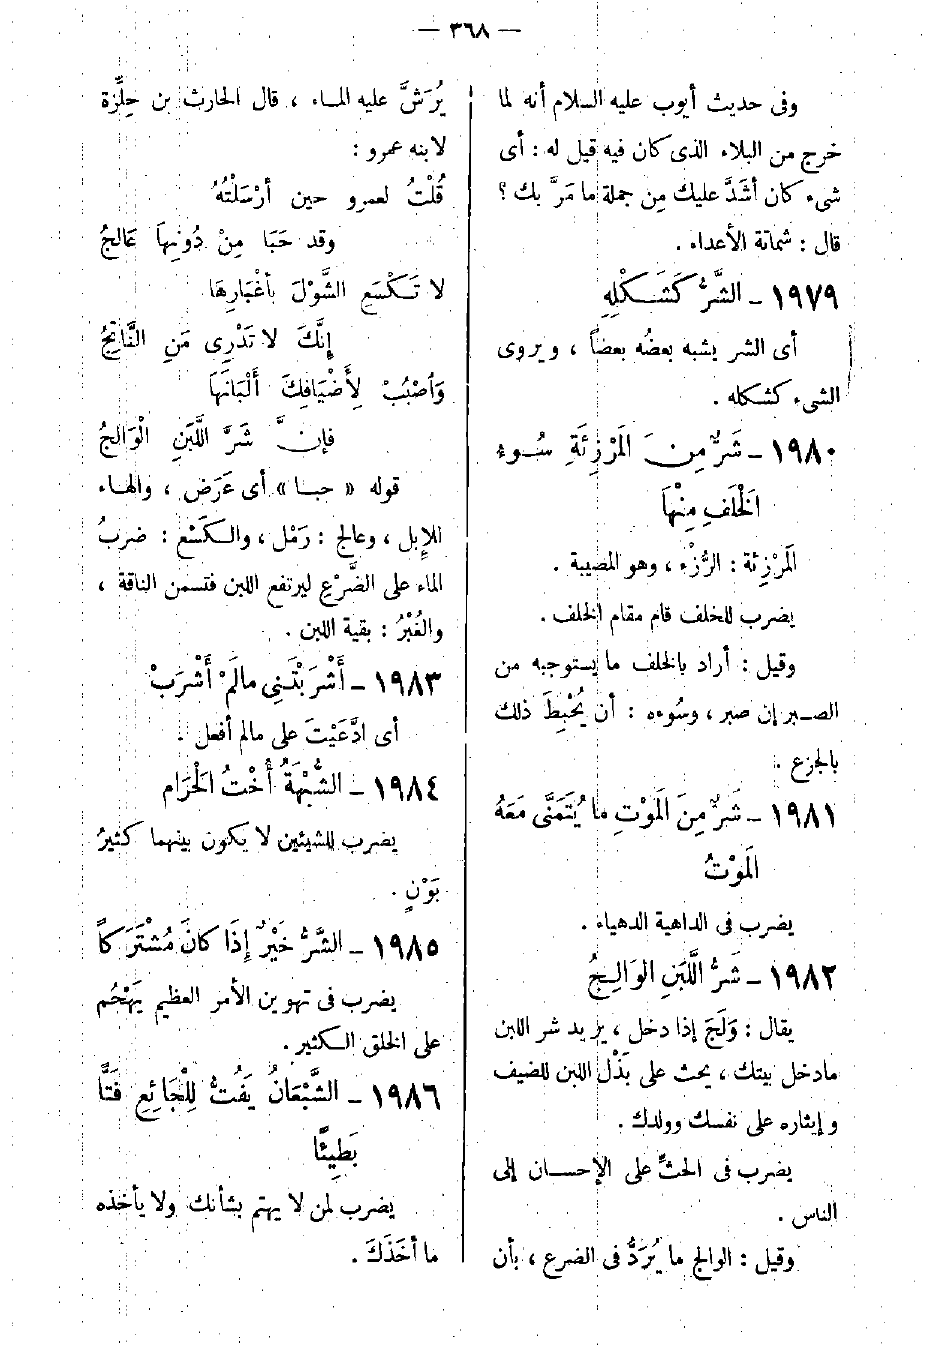 — ٣٦٨ —
وفى حديث أيوب عليه السلام أنه لما
خرج من البلاء الذى كان فيه قيل له : أى
شىء كان أشَدَّ عليك مِن جملة ما مَرَّ بك ؟
قال : شماتة الأعداء .
١٩٧٩ – الشَّرُّ كَشَكْلِهِ
أى الشر يشبه بعضُه بعضاً ، ويروى
الشىء كشكله .
١٩٨٠ – شَرٌّ مِنَ المَرْزِئَةِ سُوء
الخْلَفِ مِنْهَا
المَرْزِئة : الرُّزْء ، وهو المصيبة .
يضرب للخلف قام مقام الخلف .
وقيل : أراد بالخلف ما يستوجبه من
الصبر إن صبر ، وسُوءه : أن يُحْبِطَ ذلك
بالجزع .
١٩٨١ – شَرٌّ مِنَ المَوْتِ ما يُتَمَنَّى مَعَهُ
المَوْتُ
يضرب فى الداهية الدهياء .
١٩٨٢ – شَرُّ اللَّبَنِ الوَالِجُ
يقال : وَلَجَ إذا دخل ، يريد شر اللبن
مادخل بيتك ، يحث على بَذْل اللبن للضيف
وإيثاره على نفسك وولدك .
يضرب فى الحثِّ على الإحسان إلى
الناس .
وقيل : الوالج ما يُرَدُّ فى الضرع ، بأن
يُرَشَّ عليه الماء ، قال الحارث بن حِلِّزة
لابنه عمرو :
قُلْتُ لعمرو حين أرْسَلْتُهُ
وقد حَبَا مِنْ دُونِهاَ عَالجُ
لا تَكْسَعِ الشَّوْلَ بأغْبَارِهَا
إِنَّكَ لا تَدْرِى مَنِ النَّاتِجُ
وَاُصْبُبْ لِأَضْيَافِكَ أَلْبَانَهَا
فإنَّ شَرَّ اللَّبَنِ الْوَالجُ
قوله « حبا » أى عَرَض ، والهاء
للإبل ، وعالج : رَمْل ، والكَسْع : ضربُ
الماء على الضَّرْعِ ليرتفع اللبن فتسمن الناقة ،
والغُبْرُ : بقية اللبن .
١٩٨٣ – أَشْرَبْتَنِى مالَمْ أَشْرَبْ
أى ادَّعَيْتَ على مالم أفعل .
١٩٨٤ – الشُّبْهَةُ أُخْتُ الحْرَام
يضرب للشيئين لا يكون بينهما كثيرُ
بَوْنٍ .
١٩٨٥ – الشَّرُّ خَيْرٌ إِذَا كانَ مُشْتَرَكاً
يضرب فى تهوين الأمر العظيم يَهْجُم
على الخلق الكثير .
١٩٨٦ – الشَّبْعَانُ يَفُتُّ لِلْجَائِعِ فَتًّا
بَطِيئًا
يضرب لمن لا يهتم بشأنك ولا يأخذه
ما أخَذَكَ .